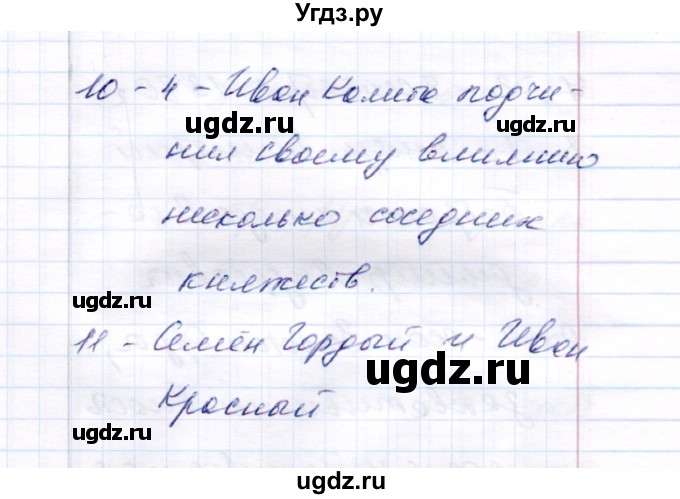 Угдз.ру
10 - 4 - Иван Калита подчи-
ugdz.ru
нил своему влиянию
несколько соседних
княжеств.
ugdz.ru
11 - Семён Гордый и Иван
ugdz.ru
Красный
ugdz.ru
ugdz.ru